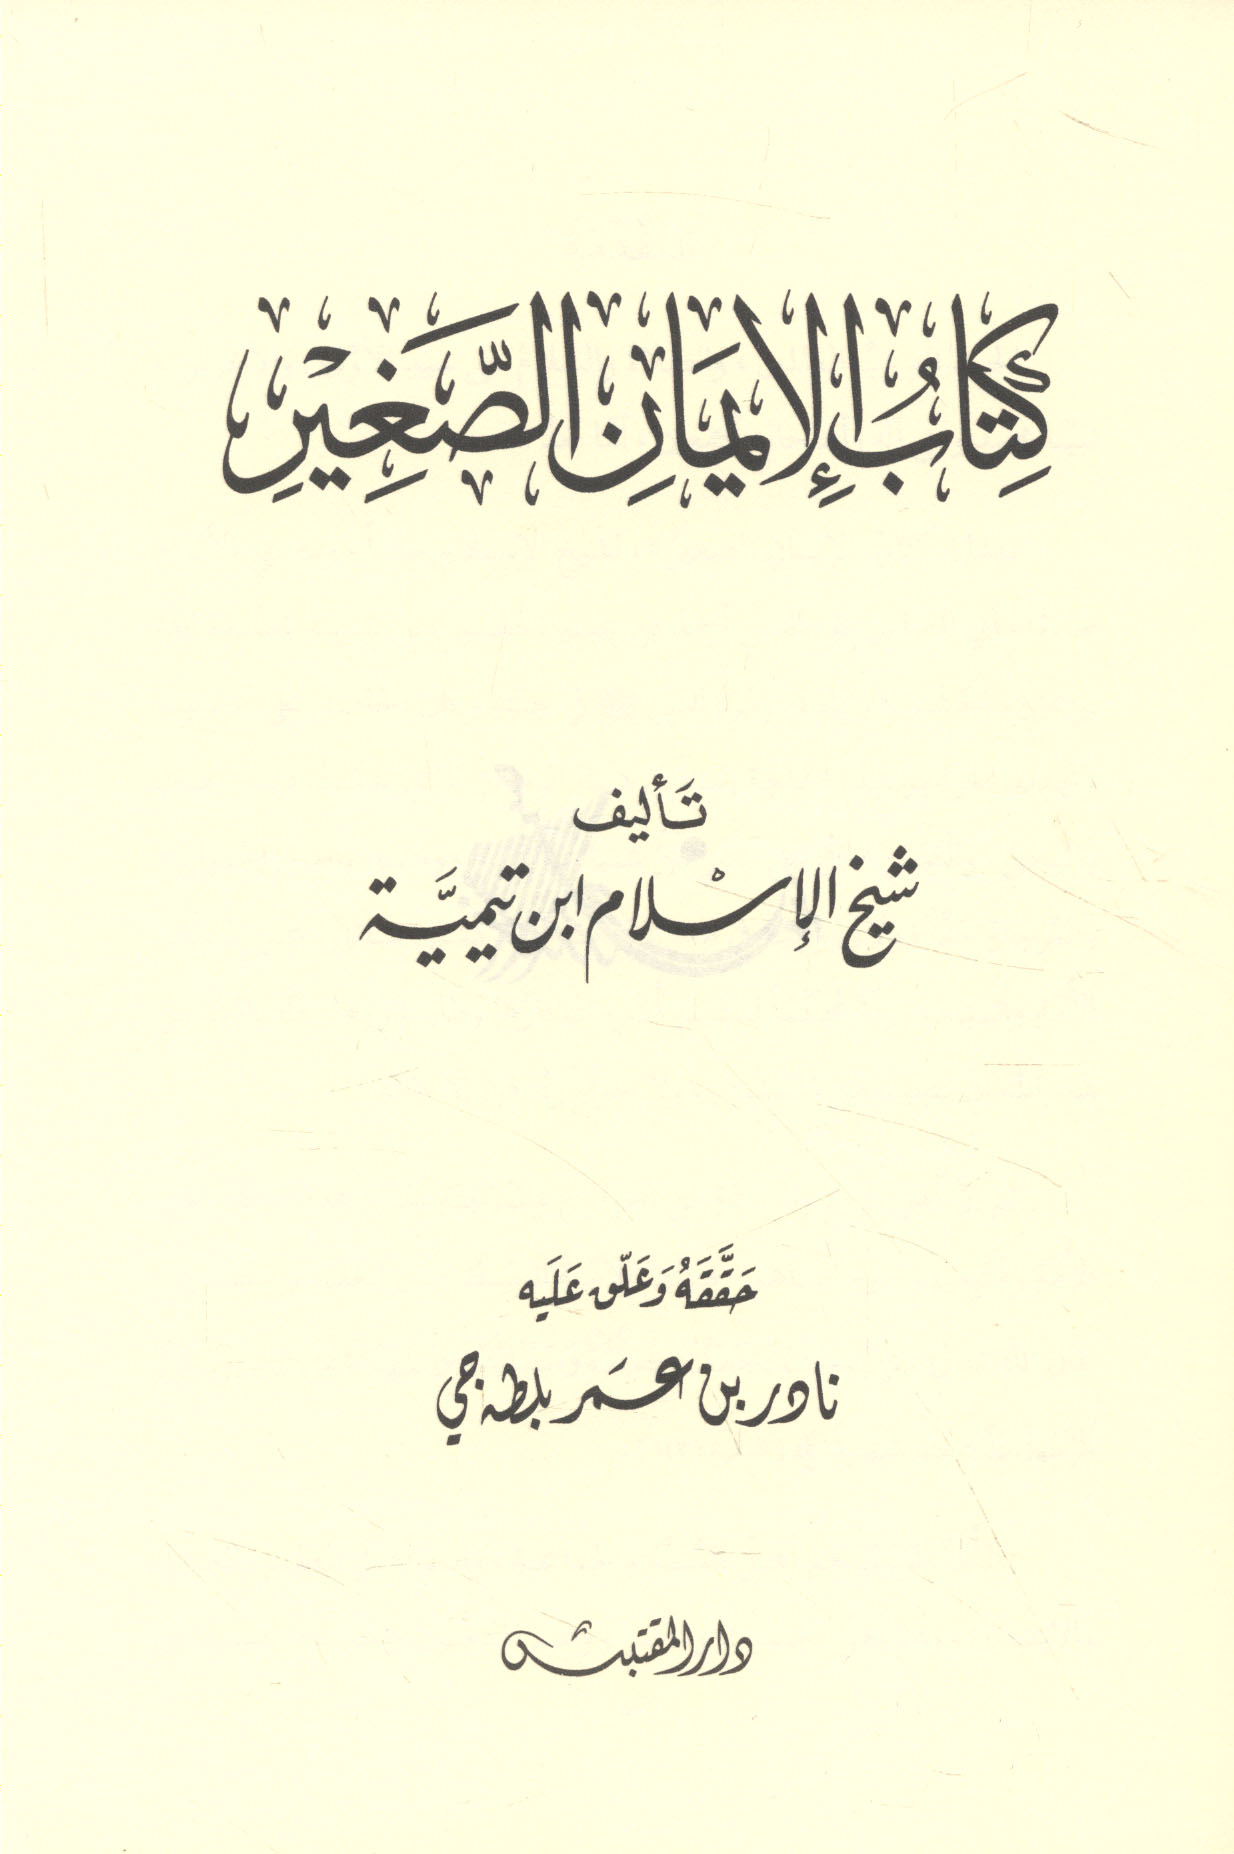 كِتَابُ الإِيمَانِ الصَّغِيْرِ
تَأليف
شيخ الإسْلام ابن تيميَّة
حَقَّقَهُ وَعَلّق عَلَيه
نادر بن عمَر بلطه جي
دار المقتبس